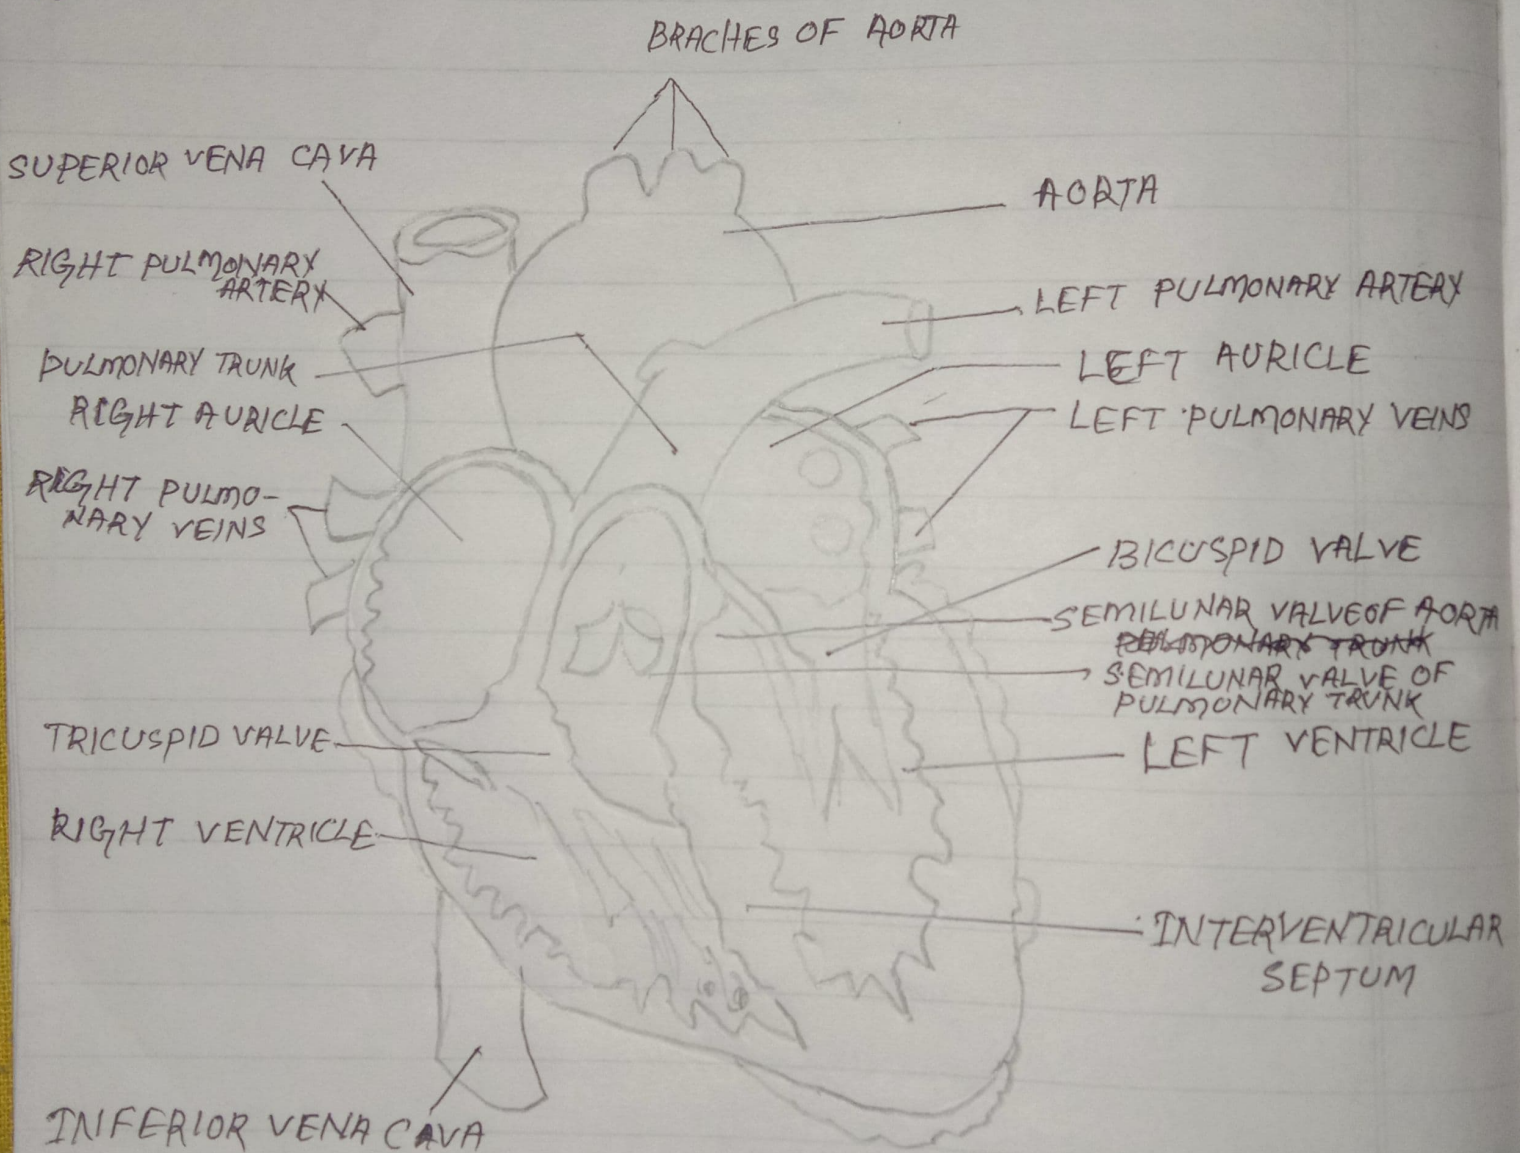 BRACHES OF AORTA
SUPERIOR VENA CAVA
RIGHT PULMONARY
ARTERY
PULMONARY TRUNK
RIGHT AURICLE
RIGHT PULMO-
NARY VEINS
TRICUSPID VALVE
RIGHT VENTRICLE
INFERIOR VENA CAVA
AORTA
LEFT PULMONARY ARTERY
LEFT AURICLE
LEFT PULMONARY VEINS
BICUSPID VALVE
SEMILUNAR VALVE OF AORTA
PULMONARY TRUNK
SEMILUNAR VALVE OF
PULMONARY TRUNK
LEFT VENTRICLE
INTERVENTRICULAR
SEPTUM